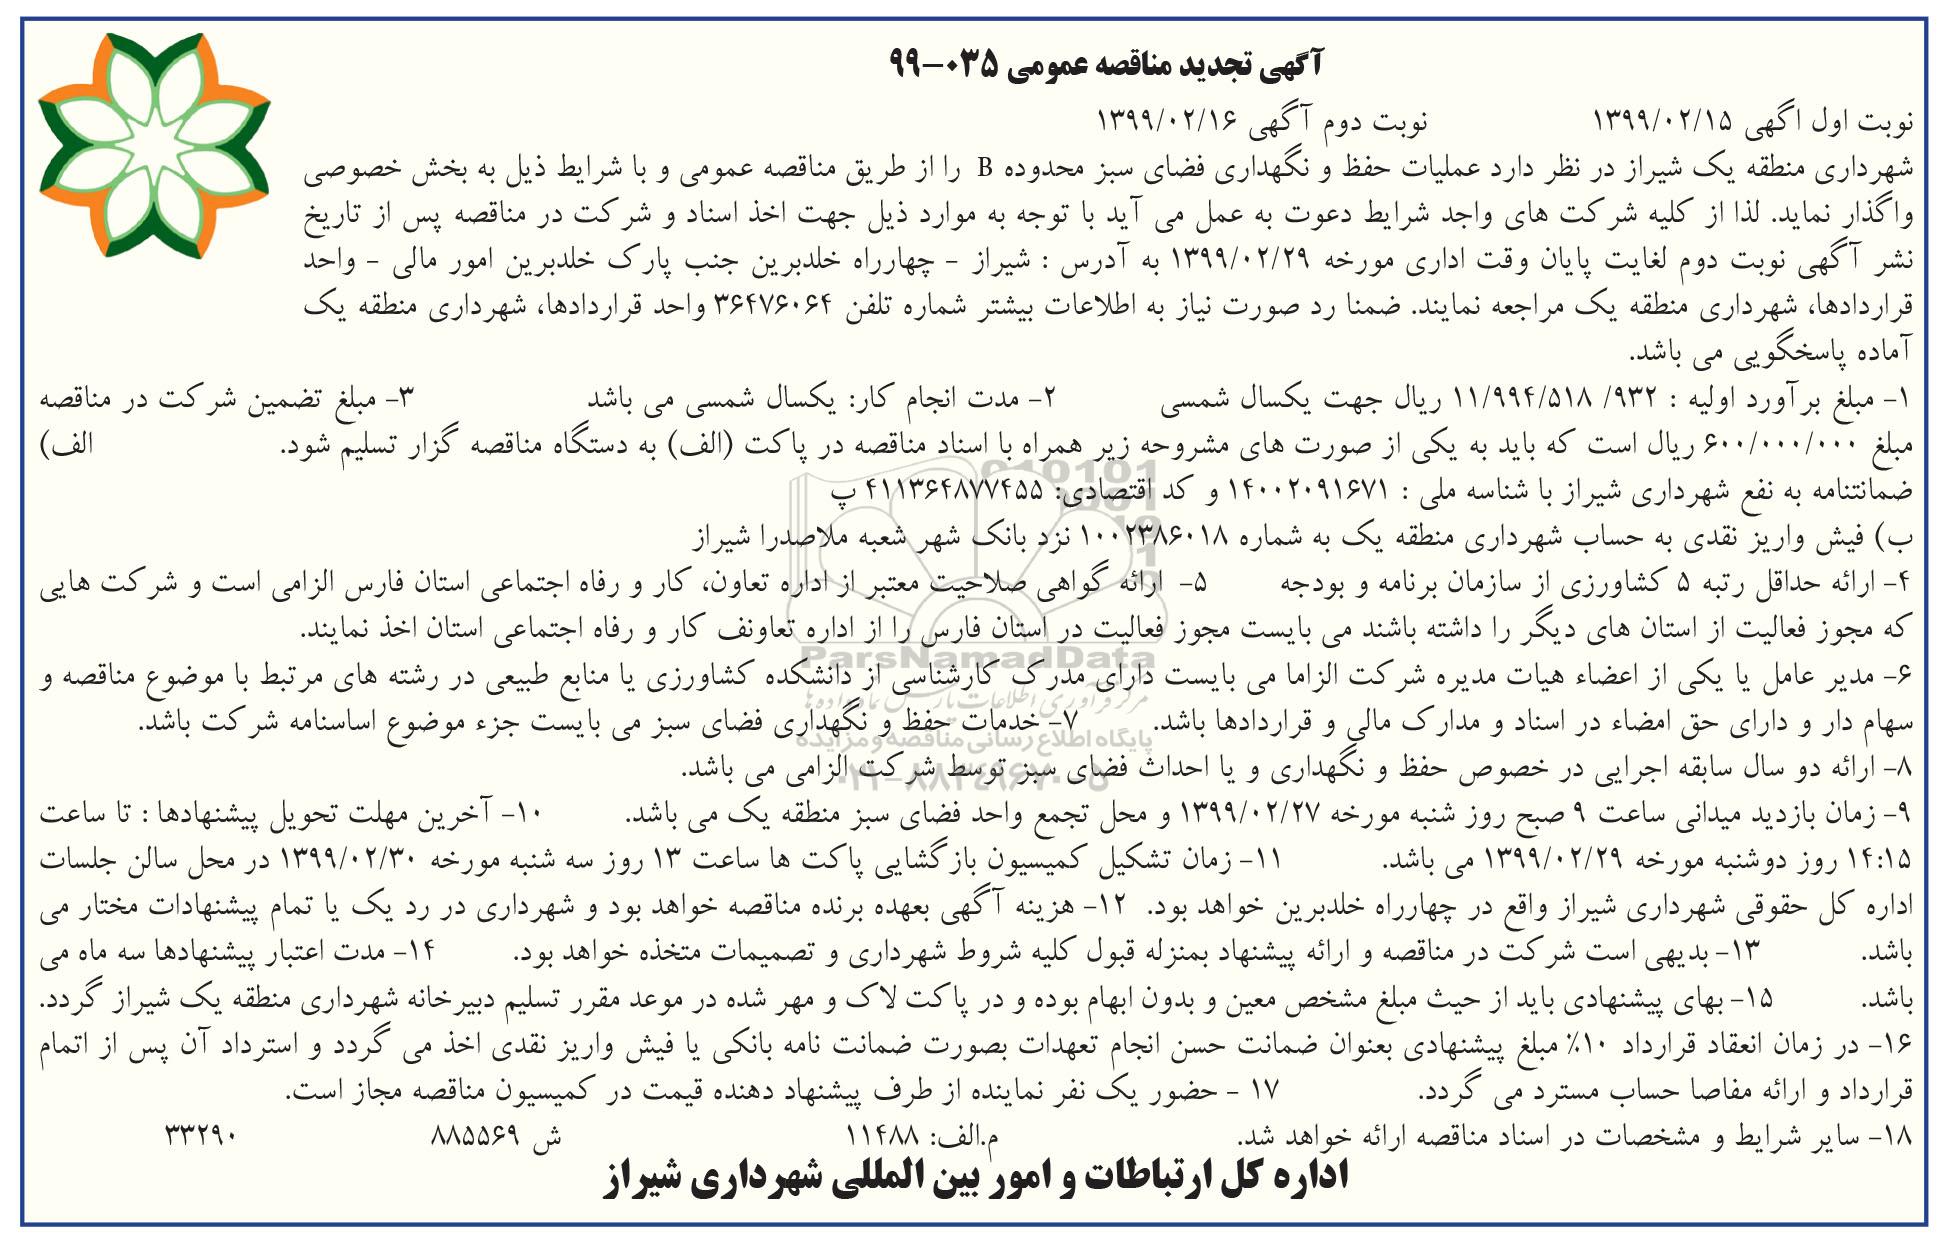 آگهی تجدید مناقصه عمومی ۰۳۵-۹۹
نوبت اول اگهی ۱۳۹۹/۰۲/۱۵ نوبت دوم آگهی ۱۳۹۹/۰۲/۱۶
شهرداری منطقه یک شیراز در نظر دارد عملیات حفظ و نگهداری فضای سبز محدوده B را از طریق مناقصه عمومی و با شرایط ذیل به بخش خصوصی
واگذار نماید. لذا از کلیه شرکت های واجد شرایط دعوت به عمل می آید با توجه به موارد ذیل جهت اخذ اسناد و شرکت در مناقصه پس از تاریخ
نشر آگهی نوبت دوم لغایت پایان وقت اداری مورخه ۱۳۹۹/۰۲/۲۹ به آدرس : شیراز - چهارراه خلدبرین جنب پارک خلدبرین امور مالی - واحد
قراردادها، شهرداری منطقه یک مراجعه نمایند. ضمنا رد صورت نیاز به اطلاعات بیشتر شماره تلفن ۳۶۴۷۶۰۶۴ واحد قراردادها، شهرداری منطقه یک
آماده پاسخگویی می باشد.
۱- مبلغ برآورد اولیه : ۹۳۲/ ۱۱/۹۹۴/۵۱۸ ریال جهت یکسال شمسی ۲- مدت انجام کار: یکسال شمسی می باشد ۳- مبلغ تضمین شرکت در مناقصه
مبلغ ۶۰۰/۰۰۰/۰۰۰ ریال است که باید به یکی از صورت های مشروحه زیر همراه با اسناد مناقصه در پاکت (الف) به دستگاه مناقصه گزار تسلیم شود. الف)
ضمانتنامه به نفع شهرداری شیراز با شناسه ملی : ۱۴۰۰۲۰۹۱۶۷۱ و کد اقتصادی: ۴۱۱۳۶۴۸۷۷۴۵۵ پ
ب) فیش واریز نقدی به حساب شهرداری منطقه یک به شماره ۱۰۰۲۳۸۶۰۱۸ نزد بانک شهر شعبه ملاصدرا شیراز
۴- ارائه حداقل رتبه ۵ کشاورزی از سازمان برنامه و بودجه ۵- ارائه گواهی صلاحیت معتبر از اداره تعاون، کار و رفاه اجتماعی استان فارس الزامی است و شرکت هایی
که مجوز فعالیت از استان های دیگر را داشته باشند می بایست مجوز فعالیت در استان فارس را از اداره تعاونف کار و رفاه اجتماعی استان اخذ نمایند.
ParsNamadData
۶- مدیر عامل یا یکی از اعضاء هیات مدیره شرکت الزاما می بایست دارای مدرک کارشناسی از دانشکده کشاورزی یا منابع طبیعی در رشته های مرتبط با موضوع مناقصه و
سهام دار و دارای حق امضاء در اسناد و مدارک مالی و قراردادها باشد. ۷- خدمات حفظ و نگهداری فضای سبز می بایست جزء موضوع اساسنامه شرکت باشد.
پایگاه اطلاع رسانی مناقصه و مزایده
۸- ارائه دو سال سابقه اجرایی در خصوص حفظ و نگهداری و یا احداث فضای سبز توسط شرکت الزامی می باشد.
۰۲۱-۸۸۳۴۹۶۷۰-۵
۹- زمان بازدید میدانی ساعت ۹ صبح روز شنبه مورخه ۱۳۹۹/۰۲/۲۷ و محل تجمع واحد فضای سبز منطقه یک می باشد. ۱۰- آخرین مهلت تحویل پیشنهادها : تا ساعت
۱۴:۱۵ روز دوشنبه مورخه ۱۳۹۹/۰۲/۲۹ می باشد. ۱۱- زمان تشکیل کمیسیون بازگشایی پاکت ها ساعت ۱۳ روز سه شنبه مورخه ۱۳۹۹/۰۲/۳۰ در محل سالن جلسات
اداره کل حقوقی شهرداری شیراز واقع در چهارراه خلدبرین خواهد بود. ۱۲- هزینه آگهی بعهده برنده مناقصه خواهد بود و شهرداری در رد یک یا تمام پیشنهادات مختار می
باشد. ۱۳- بدیهی است شرکت در مناقصه و ارائه پیشنهاد بمنزله قبول کلیه شروط شهرداری و تصمیمات متخذه خواهد بود. ۱۴- مدت اعتبار پیشنهادها سه ماه می
باشد. ۱۵- بهای پیشنهادی باید از حیث مبلغ مشخص معین و بدون ابهام بوده و در پاکت لاک و مهر شده در موعد مقرر تسلیم دبیرخانه شهرداری منطقه یک شیراز گردد.
۱۶- در زمان انعقاد قرارداد ۱۰٪ مبلغ پیشنهادی بعنوان ضمانت حسن انجام تعهدات بصورت ضمانت نامه بانکی یا فیش واریز نقدی اخذ می گردد و استرداد آن پس از اتمام
قرارداد و ارائه مفاصا حساب مسترد می گردد. ۱۷ - حضور یک نفر نماینده از طرف پیشنهاد دهنده قیمت در کمیسیون مناقصه مجاز است.
۱۸- سایر شرایط و مشخصات در اسناد مناقصه ارائه خواهد شد. م.الف: ۱۱۴۸۸ ش ۸۸۵۵۶۹ ۳۳۲۹۰
اداره کل ارتباطات و امور بین المللی شهرداری شیراز